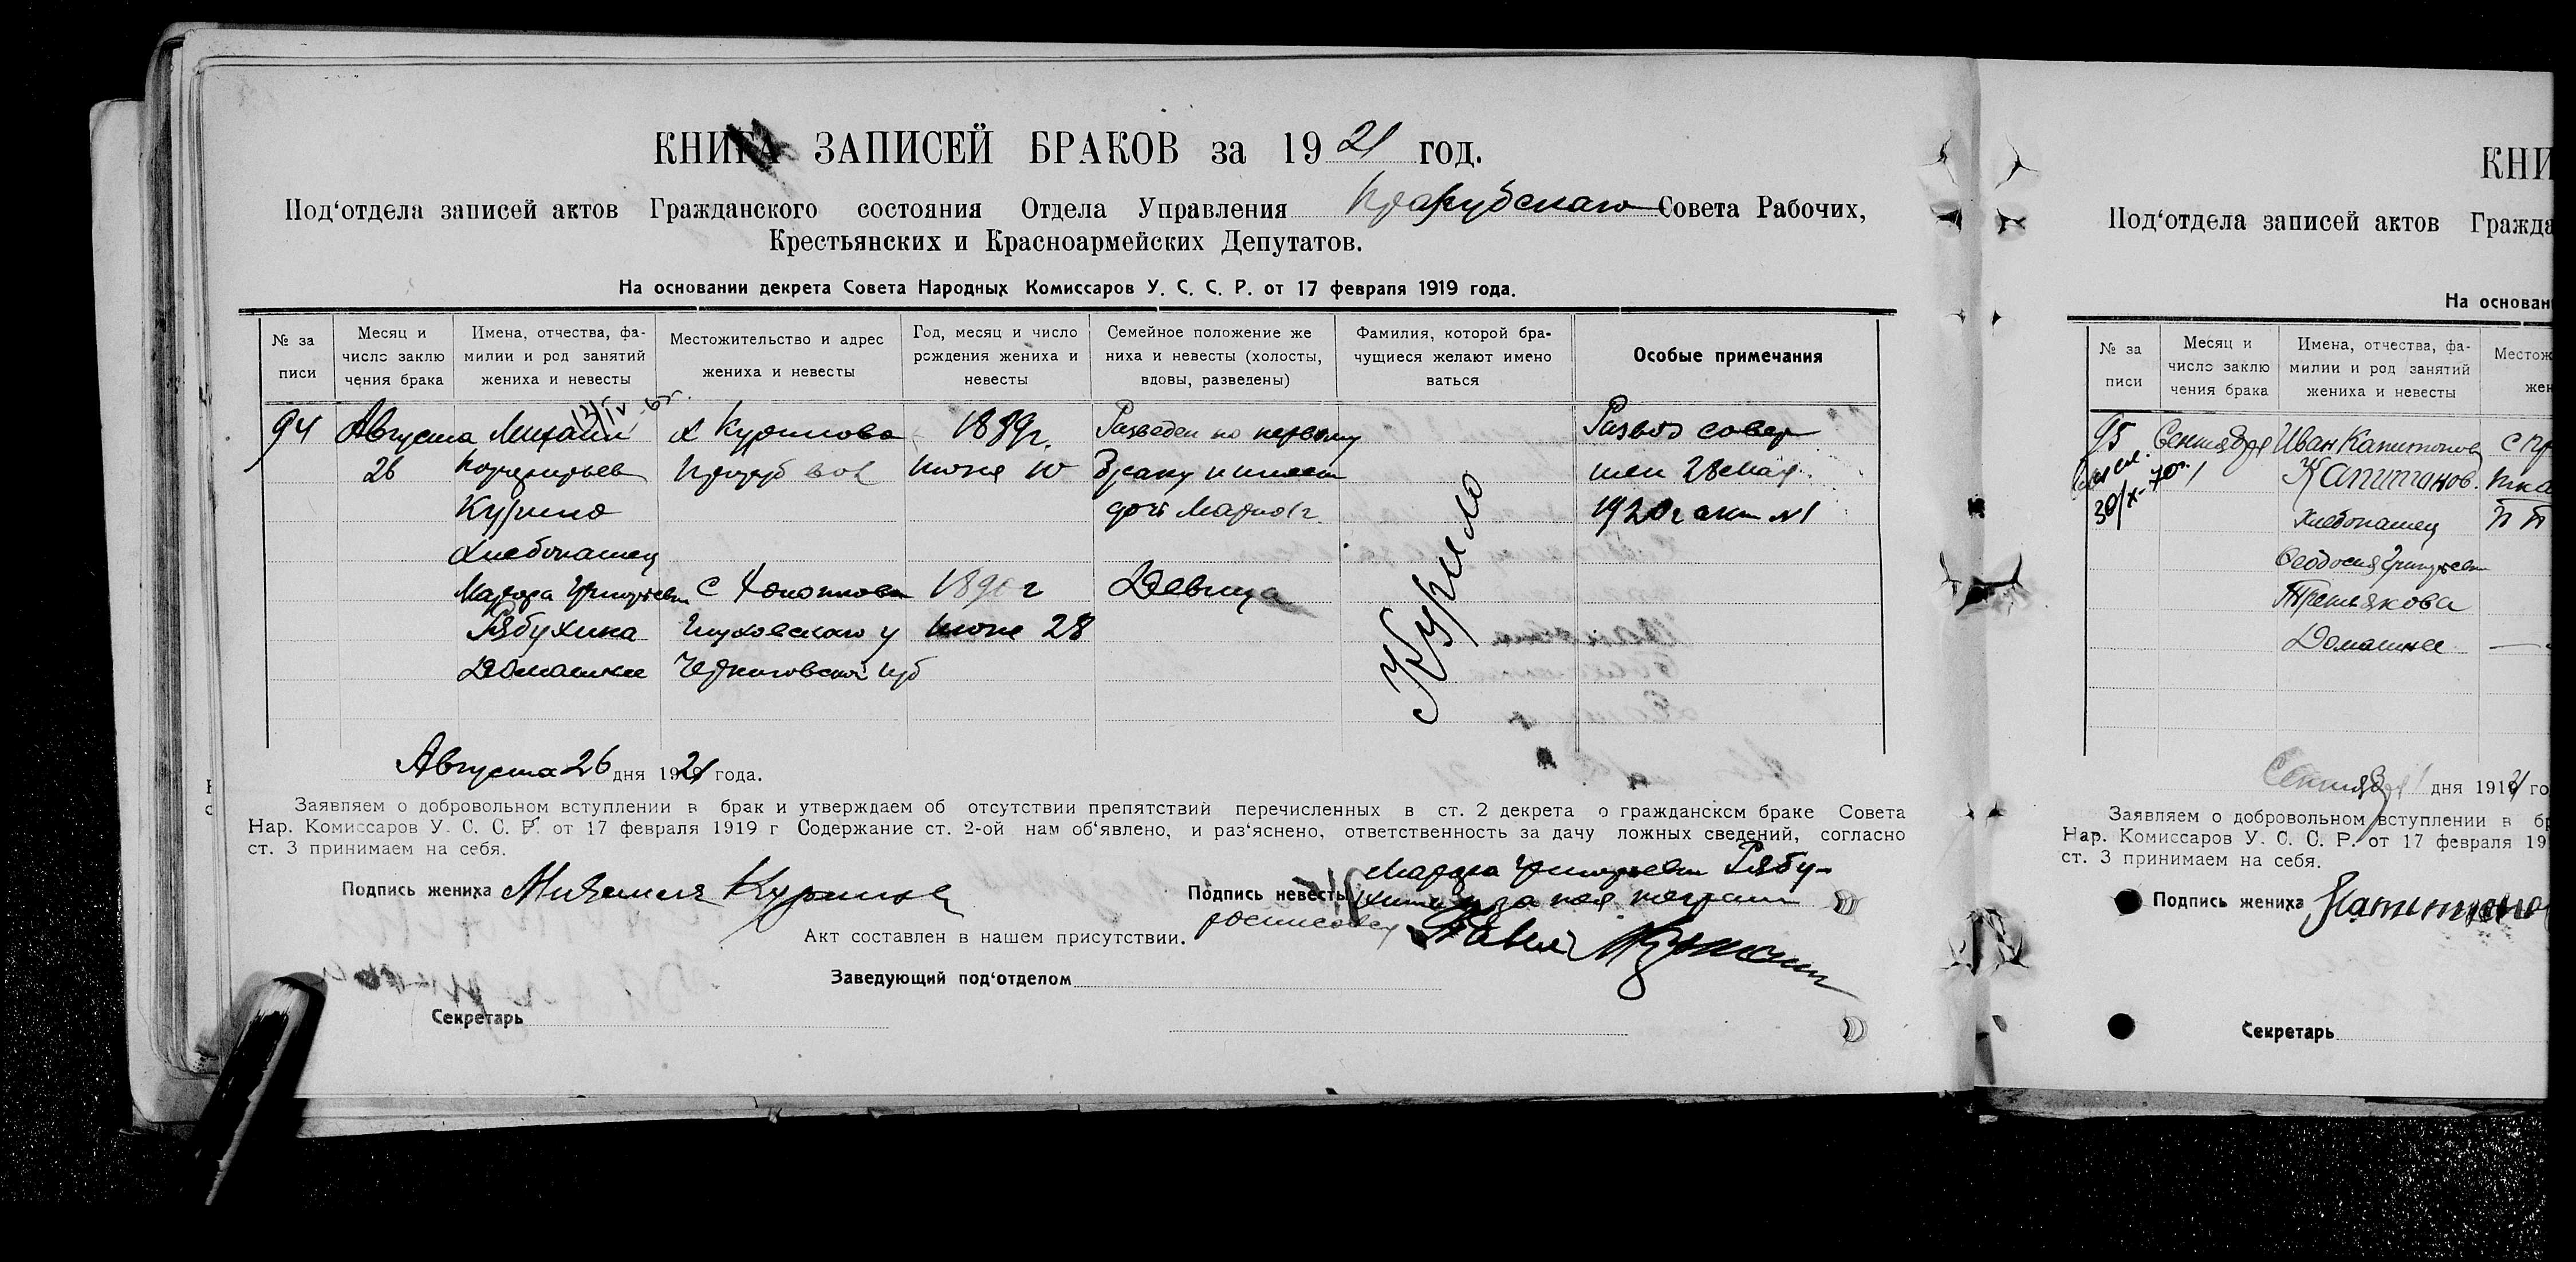 КНИГА ЗАПИСЕЙ БРАКОВ за 1921 год.
Под‘отдела записей актов Гражданского состояния Отдела Управления Совета Рабочих,
Крестьянских и Красноармейских Депутатов.
На основании декрета Совета Народных Комиссаров У. С. С. Р. от 17 февраля 1919 года.
№ за писи
Месяц и число заклю чения брака
Имена, отчества, фа- милии и род занятий жениха и невесты
Местожительство и адрес жениха и невесты
Год, месяц и число рождения жениха и невесты
Семейное положение же ниха и невесты (холосты, вдовы, разведены)
Фамилия, которой бра- чущиеся желают имено ваться
Особые примечания
94 Августа Михаил х Курилова 1889г. Разведен по первому Развод совер
26 июня 10 браку и имеет шен 28 мая
Курило 1920г акт №1
Хлебопашец
Марфа Григорьев с 189 г Девица
Рябухина Глуховского у июня 28
Домашнее Черниговской губ
Курило
Августа 26 дня 1921 года.
Заявляем о добровольном вступлении в брак и утверждаем об отсутствии препятствий перечисленных в ст. 2 декрета о гражданском браке Совета
Нар. Комиссаров У. С. С. Р. от 17 февраля 1919 г Содержание ст. 2-ой нам об‘явлено, и раз‘яснено, ответственность за дачу ложных сведений, согласно
ст. 3 принимаем на себя.
Марфа Григорьев Рябу-
Подпись жениха Курило
Подпись невесты хина а за нея неграм
росписался Павел
Акт составлен в нашем присутствии.
Заведующий под‘отделом
Секретарь
КНИ
Под‘отдела записей актов Гражда
На основан
№ за писи
Месяц и число заклю чения брака
Имена, отчества, фа- милии и род занятий жениха и невесты
Местож жен
95 Сентября Иван Капитонов с пр
30/X-70г. 1 Капитонов.
Хлебопашец
Феодосия Григорьев
Третьякова
Домашнее
Сентября 1 дня 1921 го
Заявляем о добровольном вступлении в бр
Нар. Комиссаров У. С. С. Р. от 17 февраля 19
ст. 3 принимаем на себя.
Подпись жениха Капитонов
Секретарь